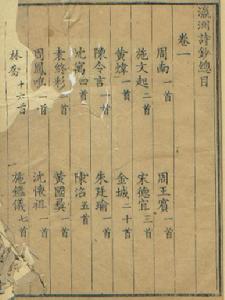 瀛洲詩鈔總目
卷一
周南一首
周王賓一首
施文起二首
宋德宜三首
黃煒一首
金城二十首
陳令言一首
朱廷瑜一首
沈寓四首
陳治五首
袁終彩一首
黃國彝一首
周鳳一首
沈傳祖一首
林喬十六首
施鑑儀七首